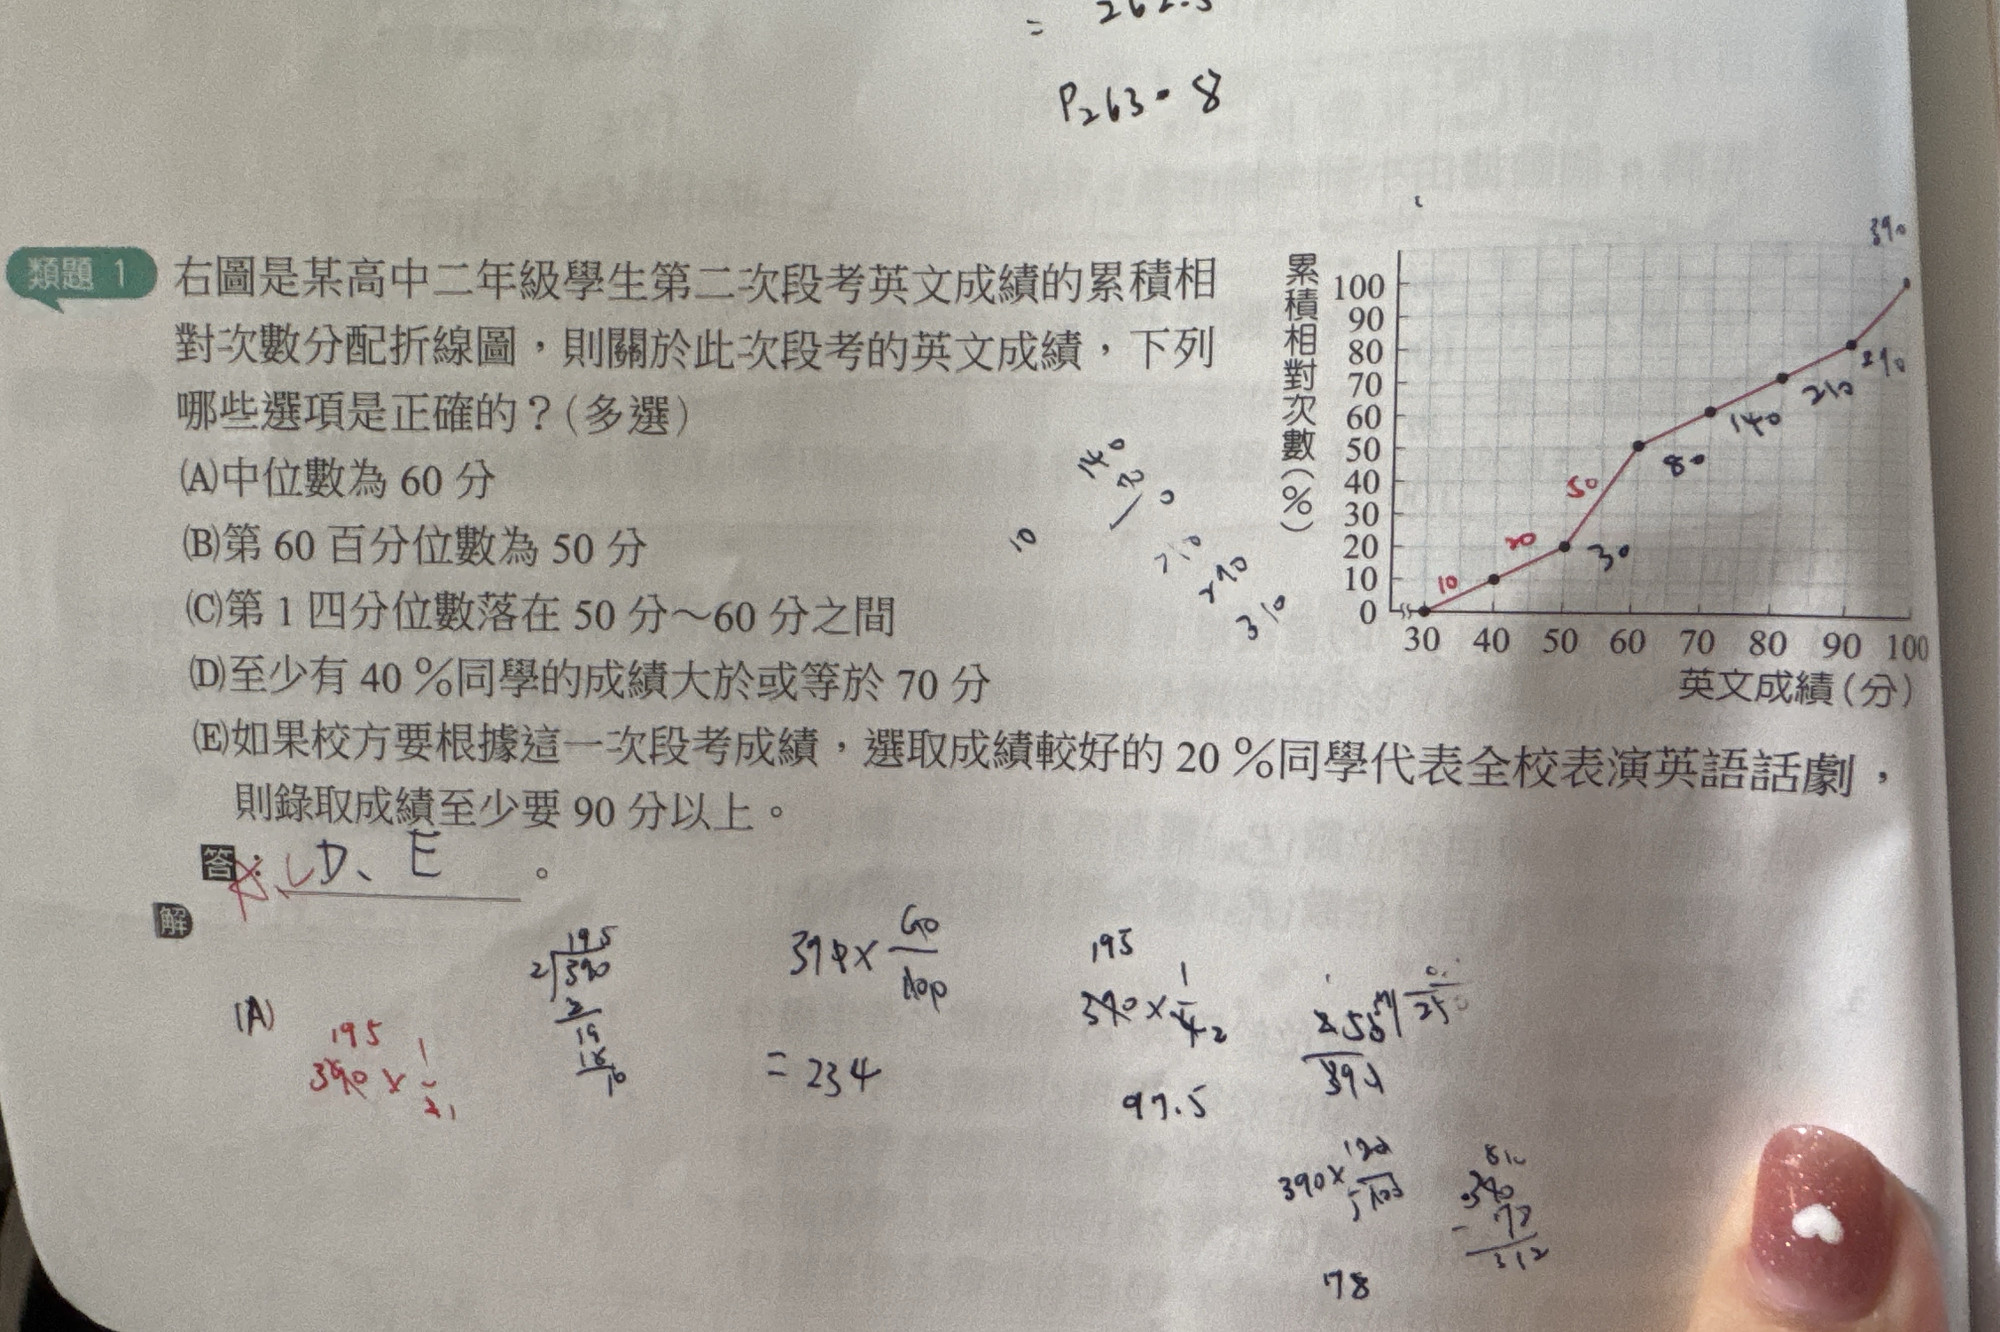 = 262.5
P263.8
類題 1
右圖是某高中二年級學生第二次段考英文成績的累積相
對次數分配折線圖，則關於此次段考的英文成績，下列
哪些選項是正確的？(多選)
(A)中位數為 60 分
(B)第 60 百分位數為 50 分
(C)第 1 四分位數落在 50 分～60 分之間
(D)至少有 40 %同學的成績大於或等於 70 分
(E)如果校方要根據這一次段考成績，選取成績較好的 20 %同學代表全校表演英語話劇，
則錄取成績至少要 90 分以上。
累積相對次數(%)
100
90
80
70
60
50
40
30
20
10
0
30 40 50 60 70 80 90 100
英文成績(分)
390
290
210
140
80
50
20
30
10
140
70
0
10
210
290
310
答：A、C D、E。
解
(A)
195
390 × 1/2
195
2 390
2
19
18
10
390 × 60/100
= 234
195
390 × 1/4
97.5
390 ×
78
312